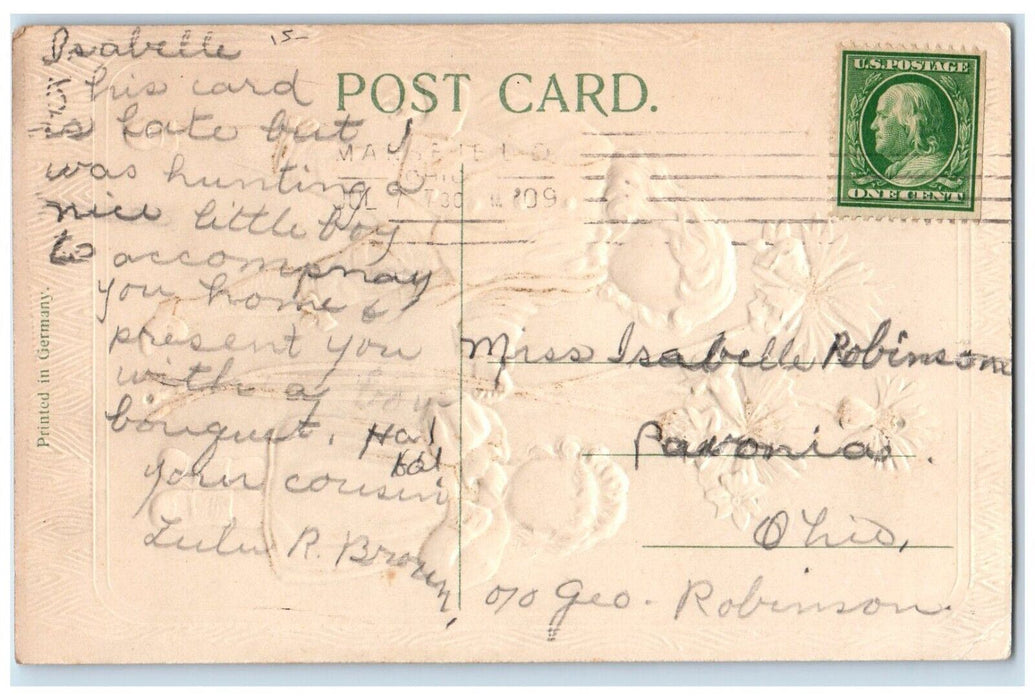 Isabelle
This card
is late but I
was hunting a
nice little boy
to accompnay
you home &
present you
with a
bouquet. Ha!
ha!
your cousin
Lulu R. Brown,
POST CARD.
U.S. POSTAGE
ONE CENT
MANSFIELD
OHIO
JUL 7 730 '09
Miss Isabelle Robinson
Pavonia.
Ohio,
c/o Geo. Robinson.
Printed in Germany.